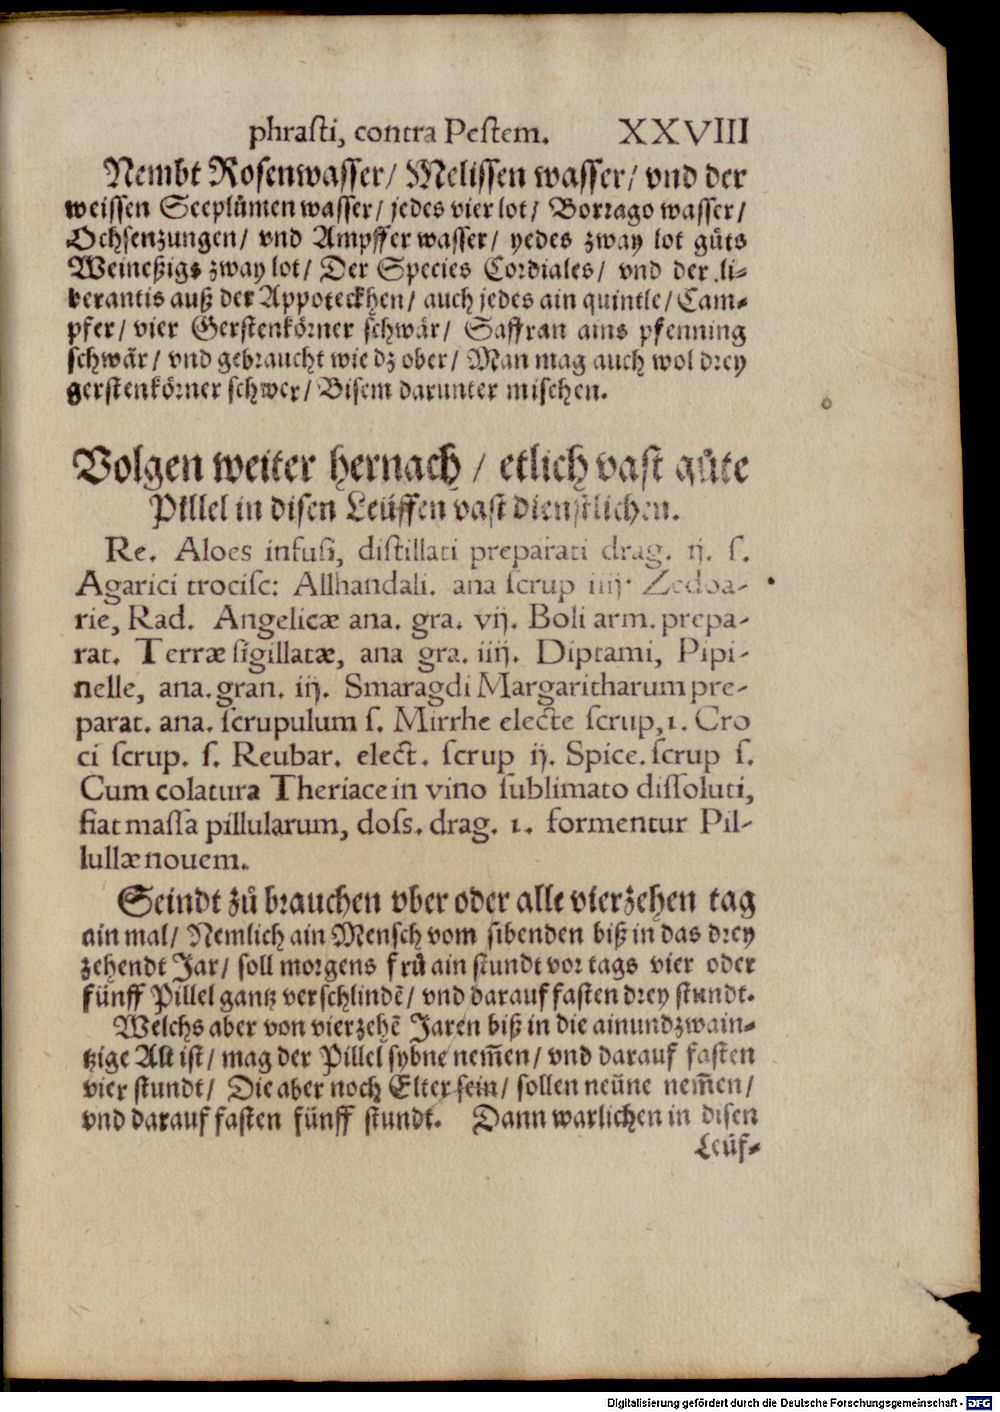 phrasti, contra Pestem. XXVIII
Nembt Rosenwasser/ Melissen wasser/ vnd der
weissen Seeplůmen wasser/ jedes vier lot/ Borrago wasser/
Ochsenzungen/ vnd Ampffer wasser/ yedes zway lot gůts
Weineßigs zway lot/ Der Species Cordiales/ vnd der li-
berantis auß der Appoteckhen/ auch jedes ain quintle/ Cam-
pfer/ vier Gerstenkörner schwär/ Saffran ains pfenning
schwär/ vnd gebraucht wie dz ober/ Man mag auch wol drey
gerstenkörner schwer/ Bisem darunter mischen.
Volgen weiter hernach / etlich vast gůte
Pillel in disen Leüffen vast dienstlichen.
Re. Aloes infusi, distillati preparati drag. ij. ſ.
Agarici trocisc: Allhandali. ana scrup iiij. Zedoa-
rie, Rad. Angelicæ ana. gra. vij. Boli arm. prepa-
rat. Terræ sigillatæ, ana gra. iiij. Diptami, Pipi-
nelle, ana. gran. iij. Smaragdi Margaritharum pre-
parat. ana. scrupulum ſ. Mirrhe electe scrup, 1. Cro
ci scrup. ſ. Reubar. elect. scrup ij. Spice. scrup ſ.
Cum colatura Theriace in vino sublimato dissoluti,
fiat massa pillularum, doss. drag. 1. formentur Pil-
lullæ nouem.
Seindt zů brauchen vber oder alle vierzehen tag
ain mal/ Nemlich ain Mensch vom sibenden biß in das drey
zehendt Jar/ soll morgens frů ain stundt vor tags vier oder
fünff Pillel gantz verschlindē/ vnd darauf fasten drey stundt.
Welchs aber von vierzehē Jaren biß in die ainundzwain-
tzige Alt ist/ mag der Pillel sybne nem̄en/ vnd darauf fasten
vier stundt/ Die aber noch Elter sein/ sollen neüne nem̄en/
vnd darauf fasten fünff stundt. Dann warlichen in disen
Leüf-
Digitalisierung gefördert durch die Deutsche Forschungsgemeinschaft - DFG